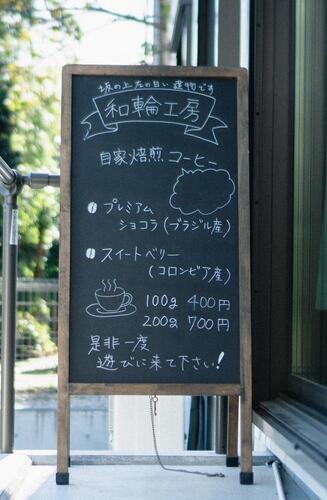 坂の上左の白い建物です
和輪工房
自家焙煎コーヒー
プレミアム
ショコラ(ブラジル産)
スイートベリー
(コロンビア産)
100g 400円
200g 700円
是非一度
遊びに来て下さい!